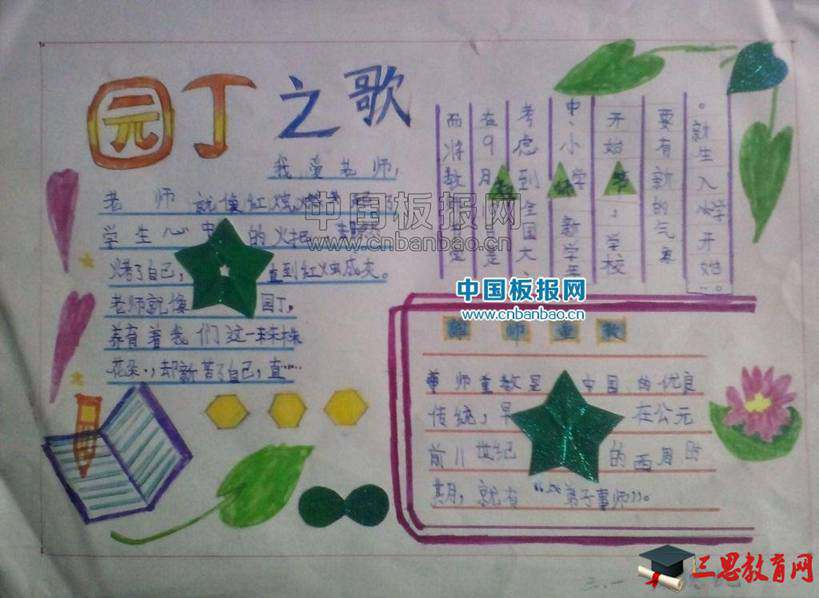 园丁之歌
我爱老师,
老师就像红烛,
学生心中的火把,
了自己,直到红烛成灰。
老师就像园丁,
养育着我们这一株株
花朵,却辛苦了自己,直……
而将教师
在9月是
考虑到全国大、
中、小学新学年
开始,学校
要有新的气象
。新生入学开始。
师重教
尊师重教是中国的优良
传统,早在公元
前11世纪的西周时
期,就有“弟子事师”。
三.一
中国板报网
www.cnbanbao.cn
中国板报网
www.cnbanbao.cn
三思教育网